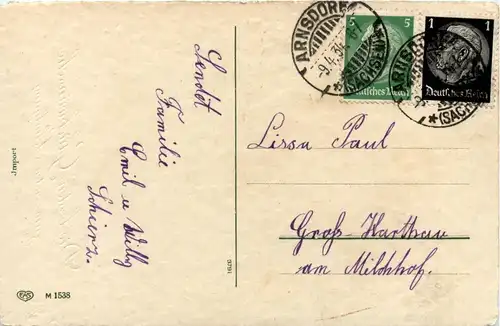 Sendet
Familie
Emil u Willy
Schierz.
Import
EAS M 1538
3791
ARNSDORF
-9.4.34
(SACHSEN)
5 5
Deutsches Reich
1
Deutsches Reich
(SACHS
Lissa Paul
Groß-Harthau
am Milchhof.